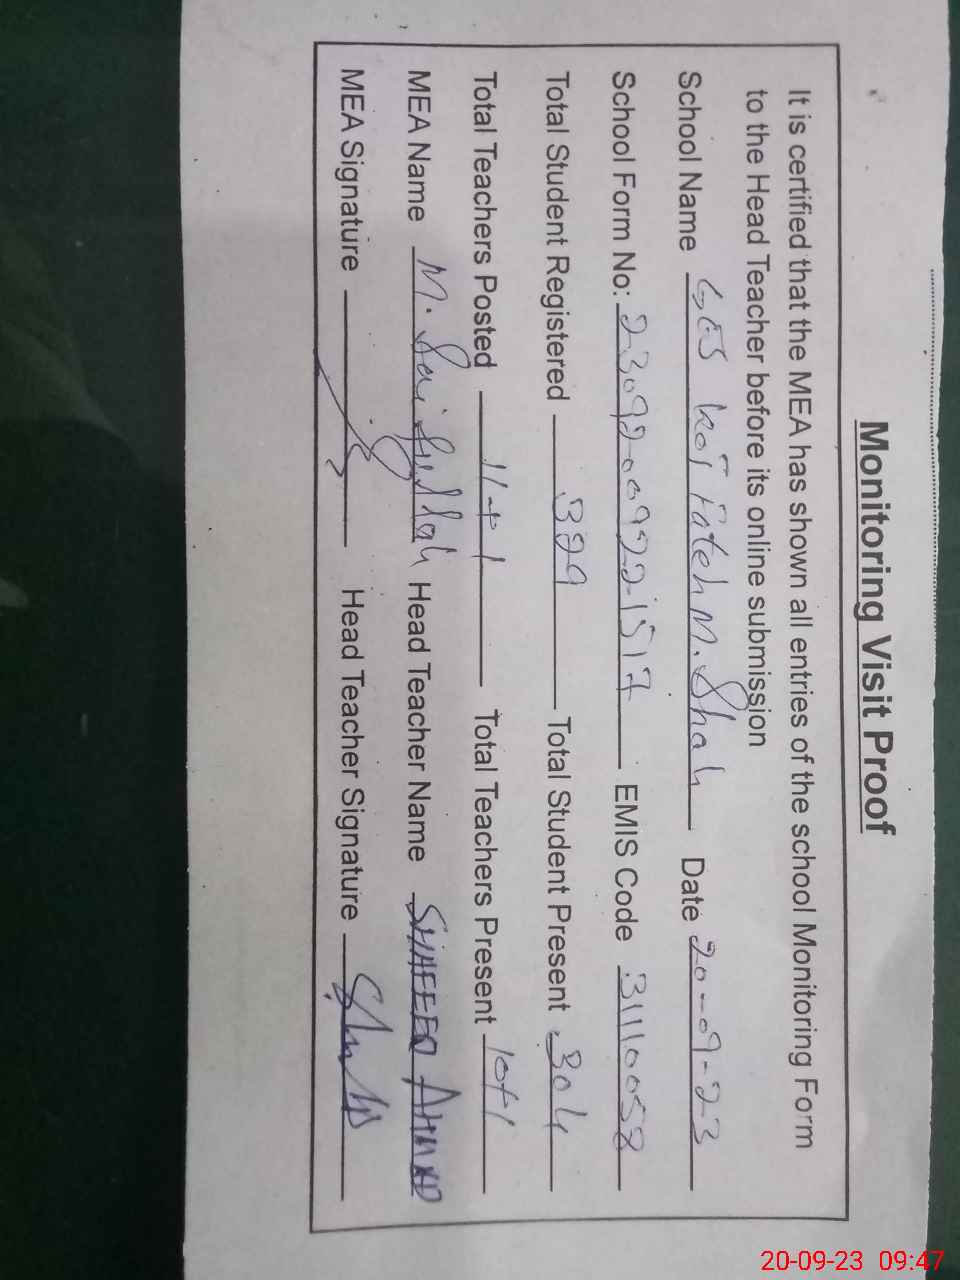 Monitoring Visit Proof
It is certified that the MEA has shown all entries of the school Monitoring Form
to the Head Teacher before its online submission
School Name GES Kot Fateh M. Shah Date 20-09-23
School Form No: 23092009221517 EMIS Code 31110058
Total Student Registered 329 Total Student Present 304
Total Teachers Posted 11+1 Total Teachers Present 10+1
MEA Name M. Saifullah Head Teacher Name SHAFEEQ AHMAD
MEA Signature Head Teacher Signature
20-09-23 09:47